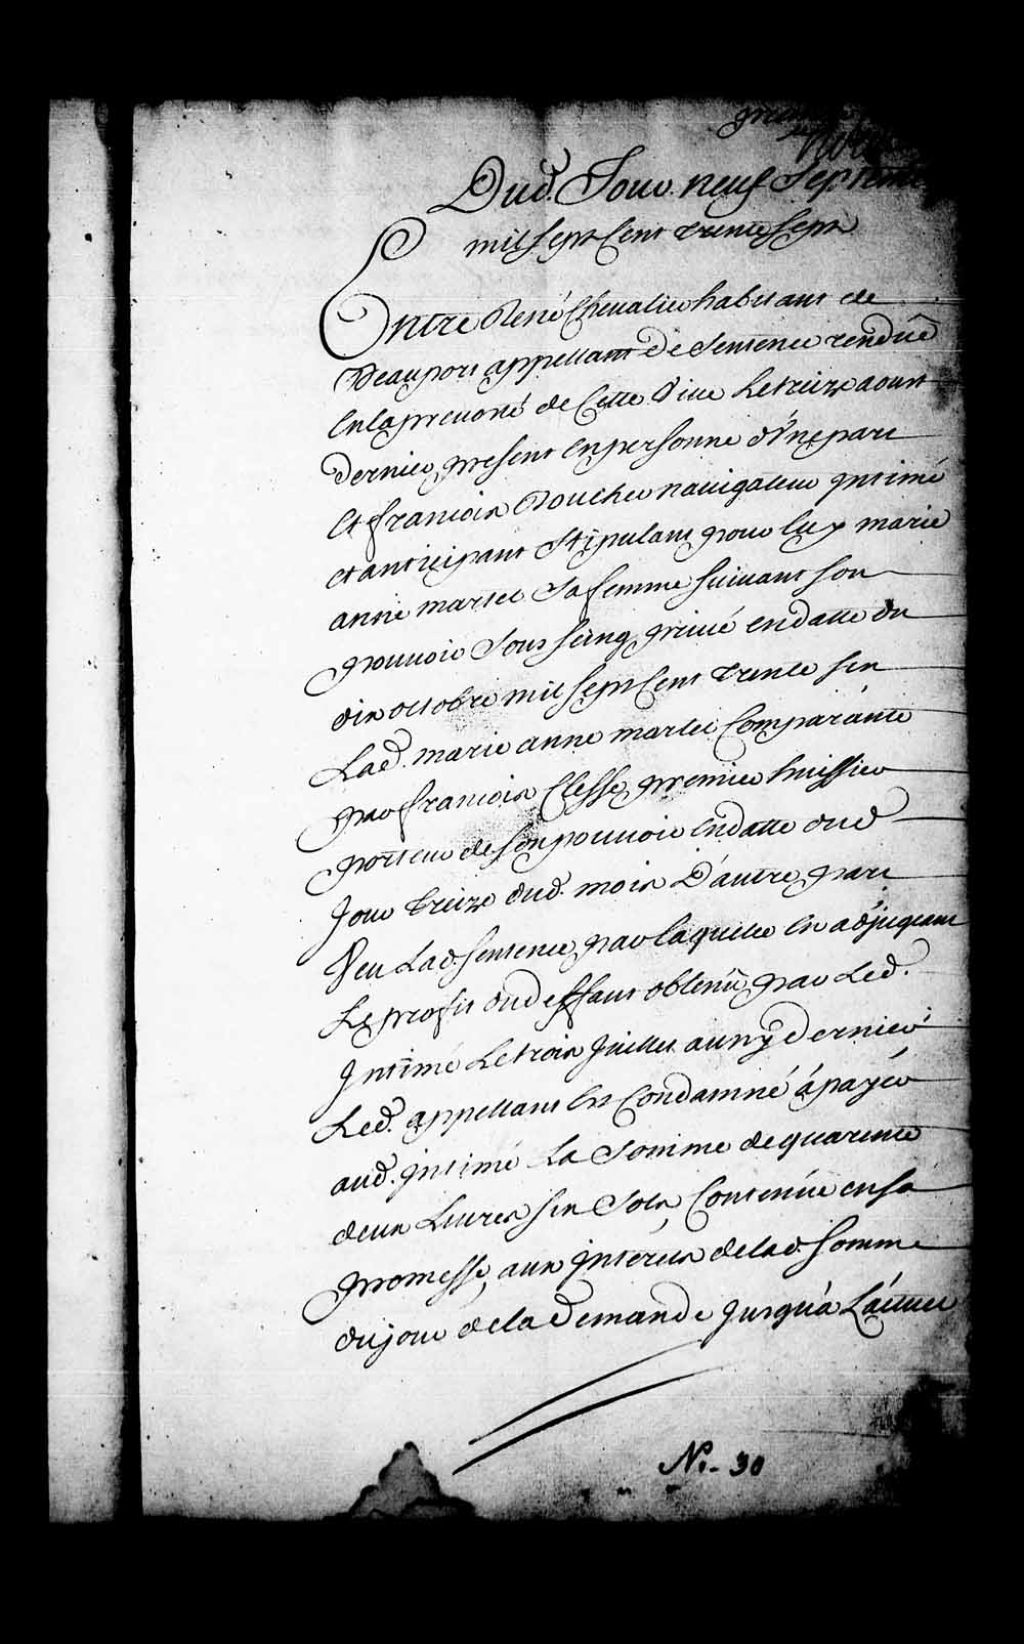 Dud. Jour neuf Septembre
mil sept Cent trente sept
Entre René Chevalier habitant de
Beauport appellant de Sentence renduë
en la prevoté de Cette Ville le treize aoust
dernier present en personne d'Une part
et francois Boucher navigateur Intimé
et anticipant Stipulant pour luy marie
anne martel Sa femme suivant son
pouvoir Sous seing privé en datte du
dix octobre mil sept Cent trente six
Lad. marie anne martel Comparante
par francois Clesse premier huissier
porteur de son pouvoir en datte dud
Jour treize dud. mois D'autre part
Veu Lad. sentence par laquelle en adjugeant
Le profit du deffaut obtenû par Led.
Intimé Le trois Juillet aussy dernier
Led. appellant est Condamné à payer
aud. intimé La Somme de quarente
deux Livres six Sols Contenüe en sa
promesse, aux Intérets de lad. somme
du jour de la Demande Jusqu'à L'actuel
No. 30